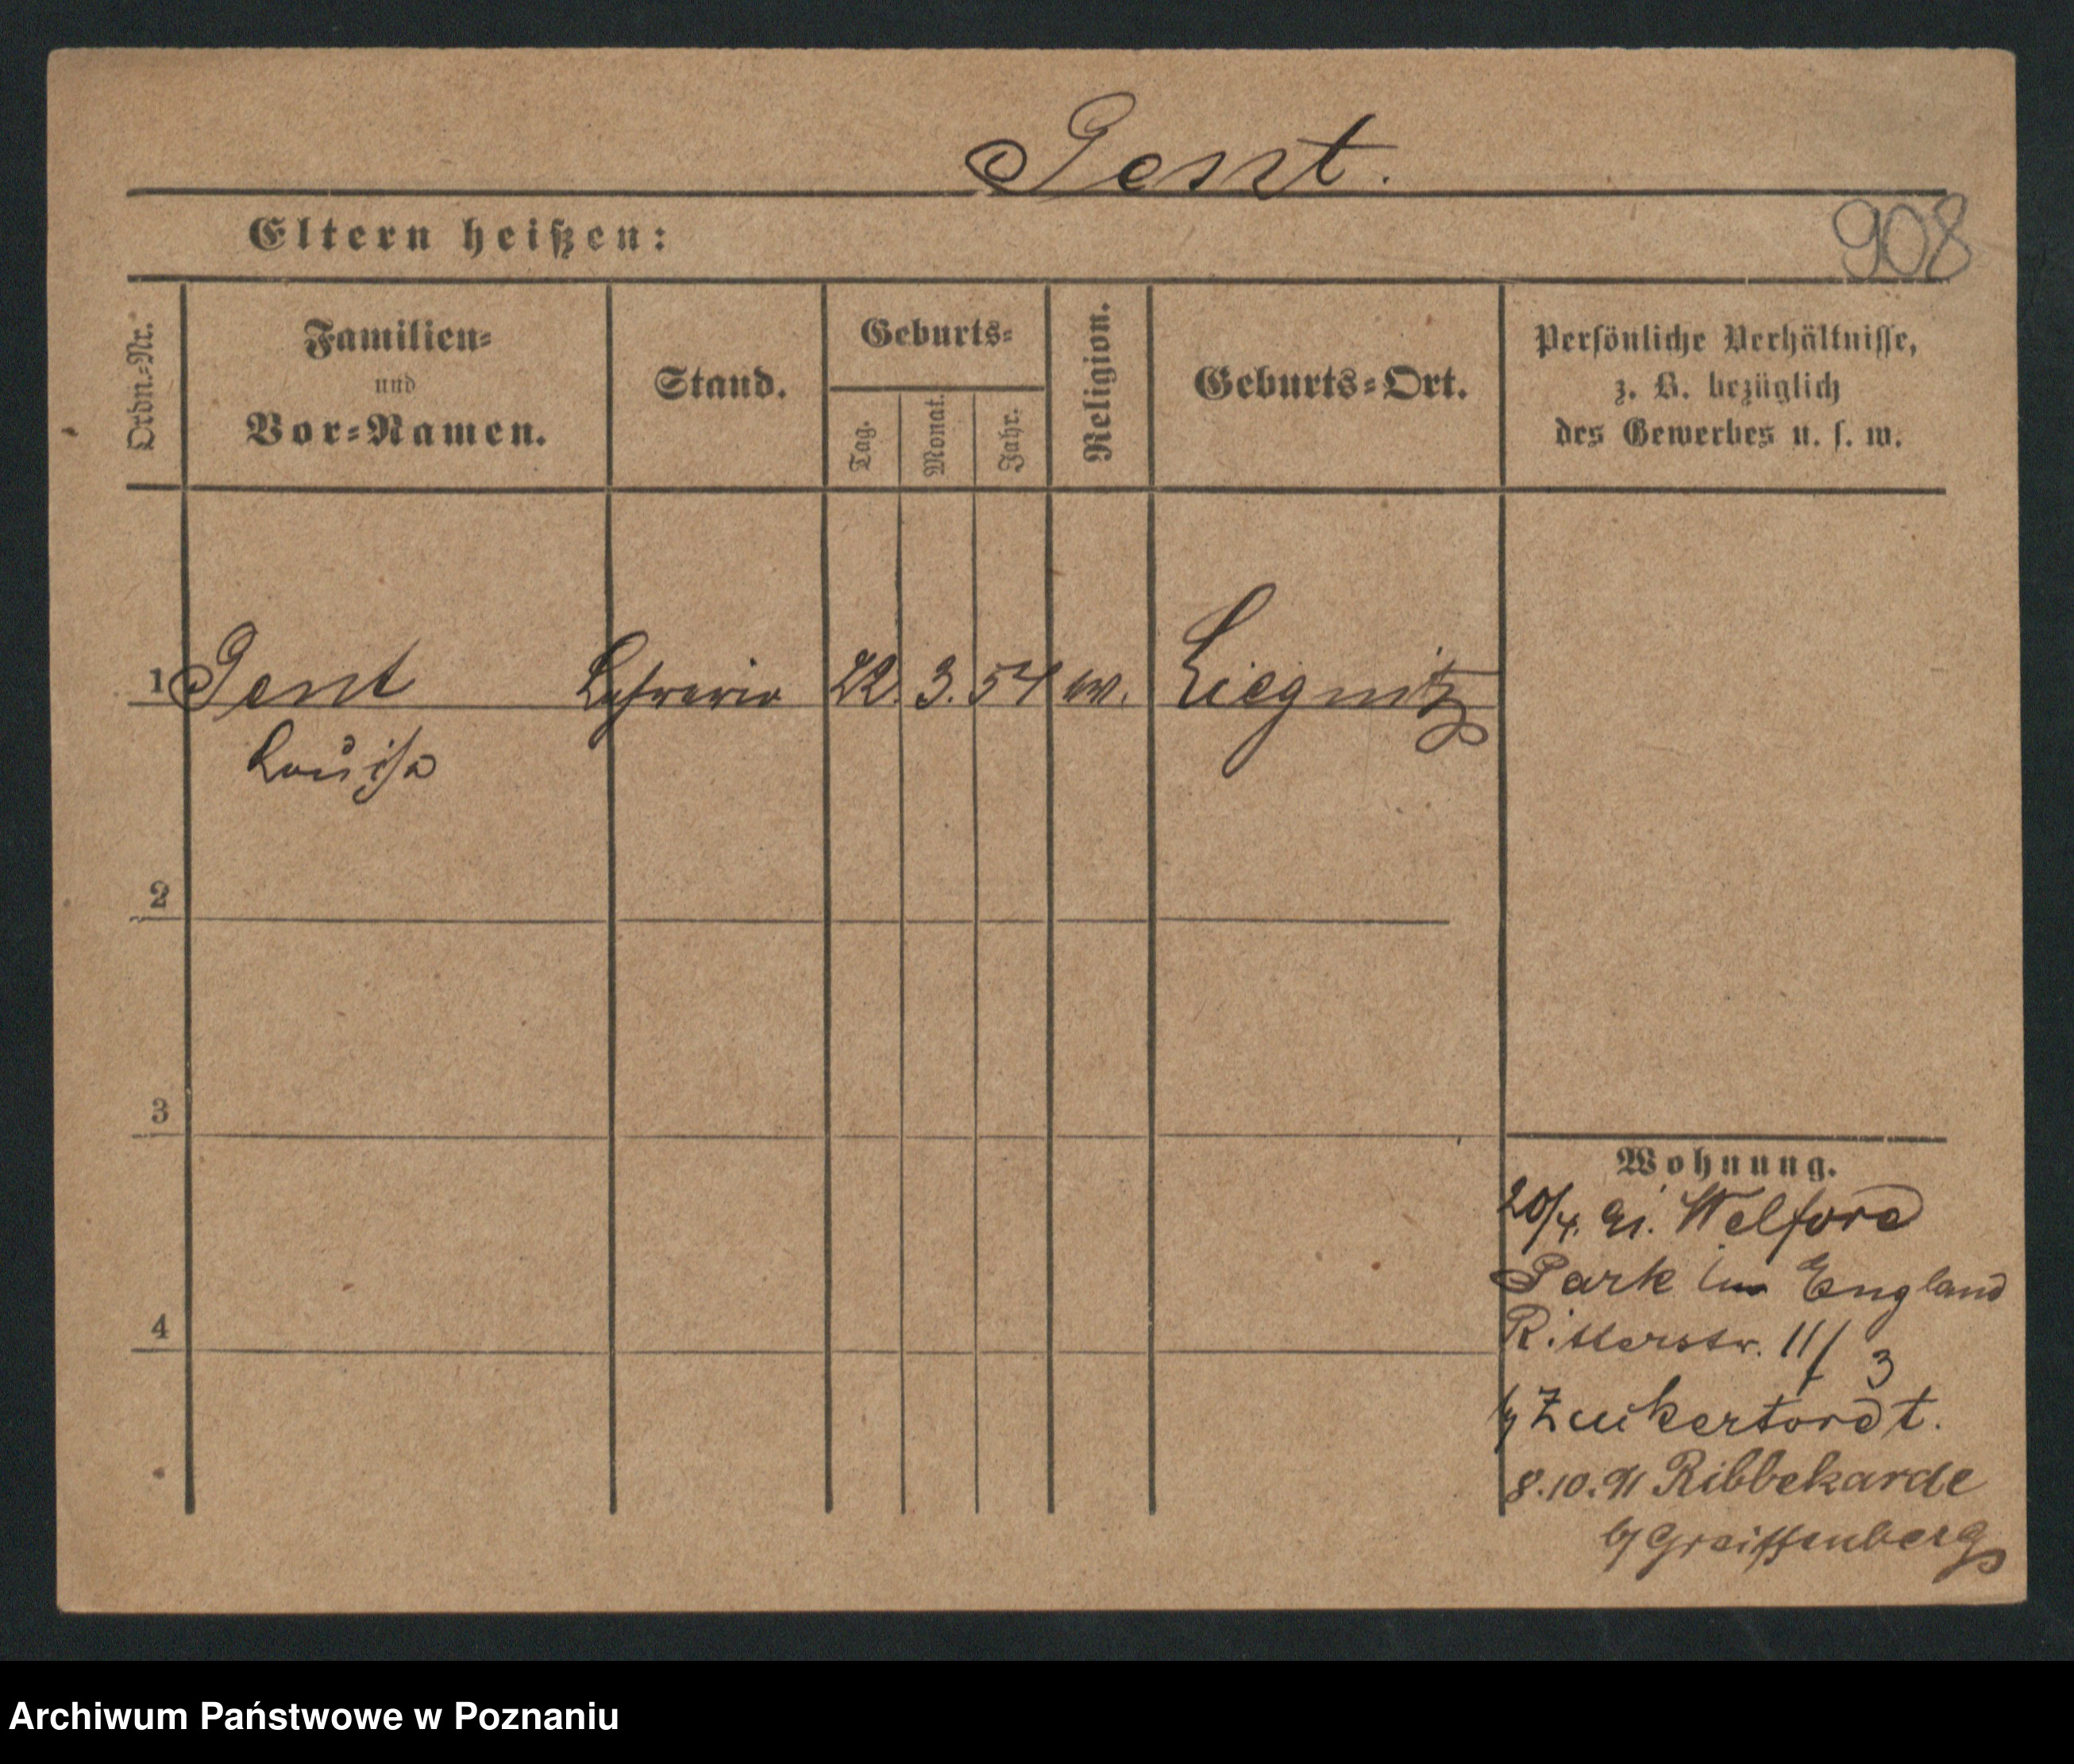 Jent.
908
Eltern heißen:
Ordn.-Nr.
Familien- und Vor-Namen.
Stand.
Geburts-
Tag.
Monat.
Jahr.
Religion.
Geburts-Ort.
Persönliche Verhältnisse,
z. B. bezüglich
des Gewerbes u. s. w.
1 Jent Lehrerin 22. 3. 54 Liegnitz
Louise
2
3
4
Wohnung.
20/4. 91. Welford
Park in England
Ritterstr. 11/3
b/ Zuckertordt.
8.10.91 Ribbekardt
b/ Greiffenberg
Archiwum Państwowe w Poznaniu